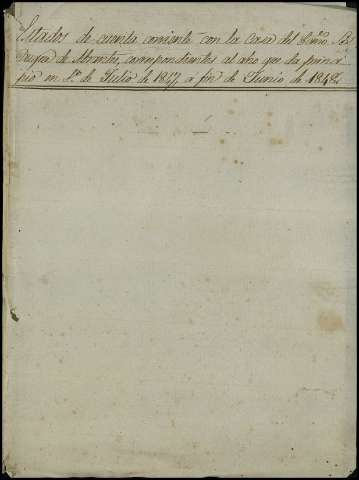 Estados de cuenta corriente con la casa del Exmo. Sor.
Duque de Abrantes, correspondientes al año que da princi-
pio en 1º. de Julio de 1847, a fin de Junio de 1848.